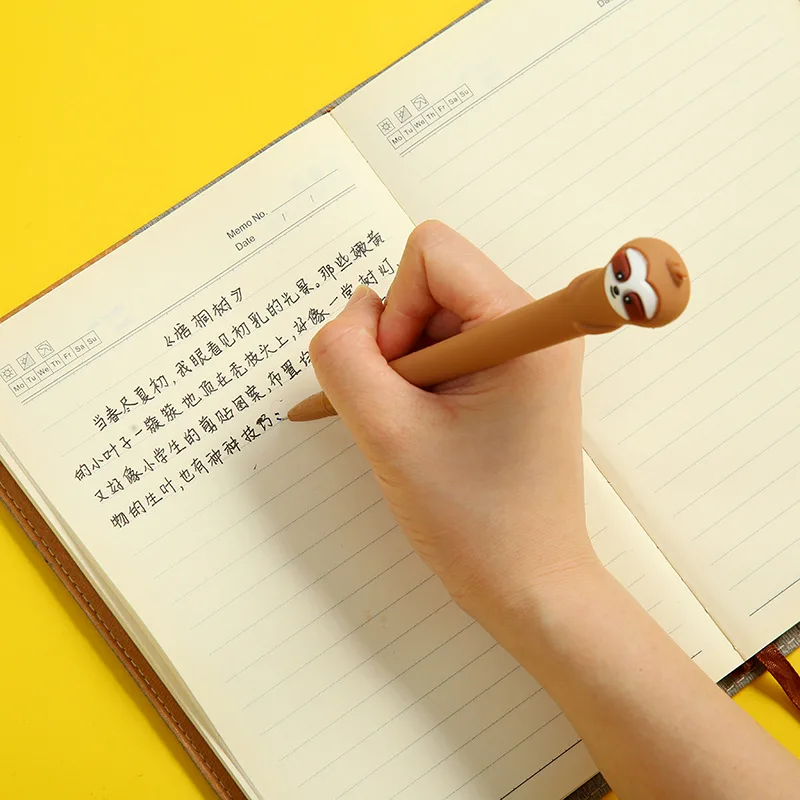 Memo No.
Date / /
Mo Tu We Th Fr Sa Su
《梧桐树》
当春尽夏初,我眼看见初乳的光景。那些嫩黄
的小叶子一簇簇地顶在秃枝头上,好像一堂树灯,
又好像小学生的剪贴图案,布置
物的生叶,也有种种技巧:
Mo Tu We Th Fr Sa Su